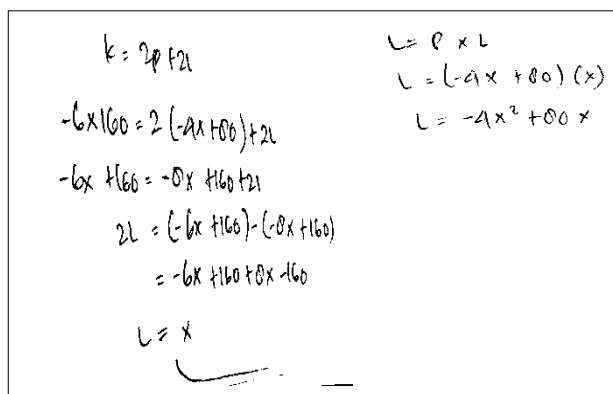 k = 2p+2l
-6x160 = 2(-4x+80)+2l
-6x +160 = -8x +160+2l
2l = (-6x+160)-(-8x+160)
= -6x +160+8x-160
L = x
L = P x L
L = (-4x +80) (x)
L = -4x² +80 x